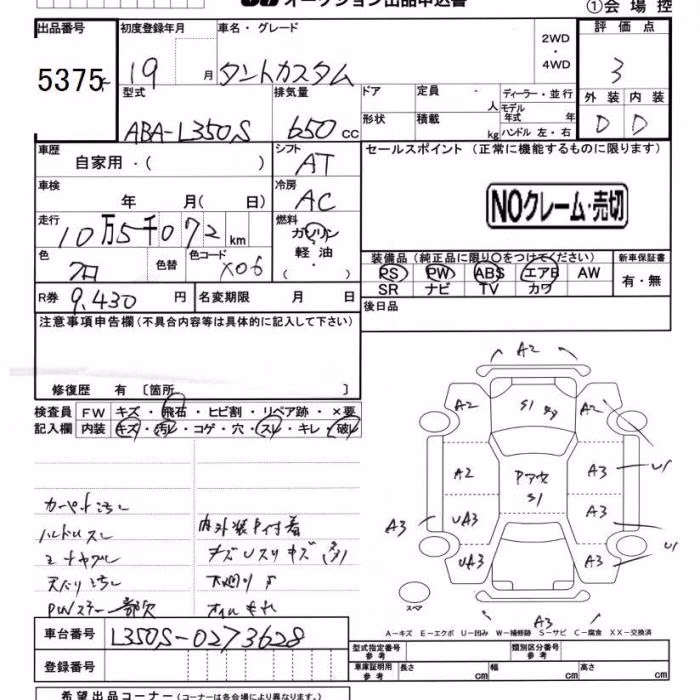 オークション出品申込書
①会場控
出品番号
5375
初度登録年月
19 月
車名・グレード
タントカスタム
2WD
・
4WD
評価点
3
型式
ABA-L350S
排気量
650 cc
ドア
形状
定員 人
積載 kg
ディーラー・並行
モデル年式 年
ハンドル 左・右
外装 内装
D D
車歴
自家用・( )
シフト
AT
セールスポイント (正常に機能するものに限ります)
車検
年 月( 日)
冷房
AC
NOクレーム・売切
走行
10万5千072 km
燃料
ガソリン
軽油
( ・ )
色
クロ
色替
色コード
X06
装備品(純正品に限り○をつけてください)
新車保証書
PS PW ABS エアB AW
SR ナビ TV カワ
有・無
R券 9,430 円
名変期限 月 日
後日品
注意事項申告欄(不具合内容等は具体的に記入して下さい)
修復歴 有 〔箇所 〕
検査員 FW キズ・飛石・ヒビ割・リペア跡・×要
記入欄 内装 キズ・汚レ・コゲ・穴・スレ・キレ・破レ
カーペット汚レ
ハンドルスレ
シートヤブレ
天バリ汚レ
内外装P付着
オイルモレ
A2
A2
S1
A2
A2
S1
A3
A3
UA3
A3
UA3
A3
A3
スペア
A-キズ E-エクボ U-凹み W-補修跡 S-サビ C-腐食 XX-交換済
車台番号 L350S-0273628
登録番号
型式指定番号 参考
類別区分番号 参考
車庫証明用 参考 長さ cm 幅 cm 高さ cm
希望出品コーナー(コーナーは各会場により異なります。)